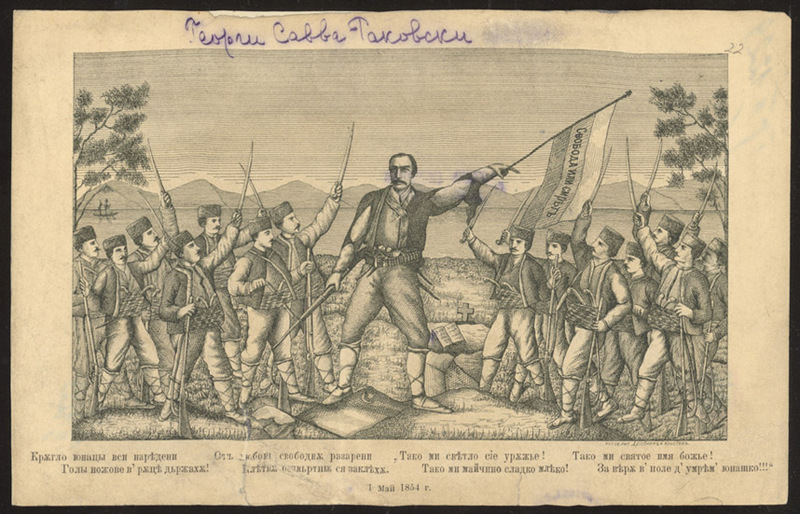 Георги Савва-Раковски
22
Свобода или смърть
Крѫгло юнацы вси нарѣдени Отъ любовь свободѫ разарени „Тако ми свѣтло сіе урѫжье! Тако ми святое имя божье!
Голы ножове в' рѫцѣ държахѫ! Клѣтвѫ безмъртнѫ ся заклѣхѫ. Тако ми майчино сладко млѣко! За вѣрѫ в' поле д' умрѣм' юнашко!!!“
1 Май 1854 г.